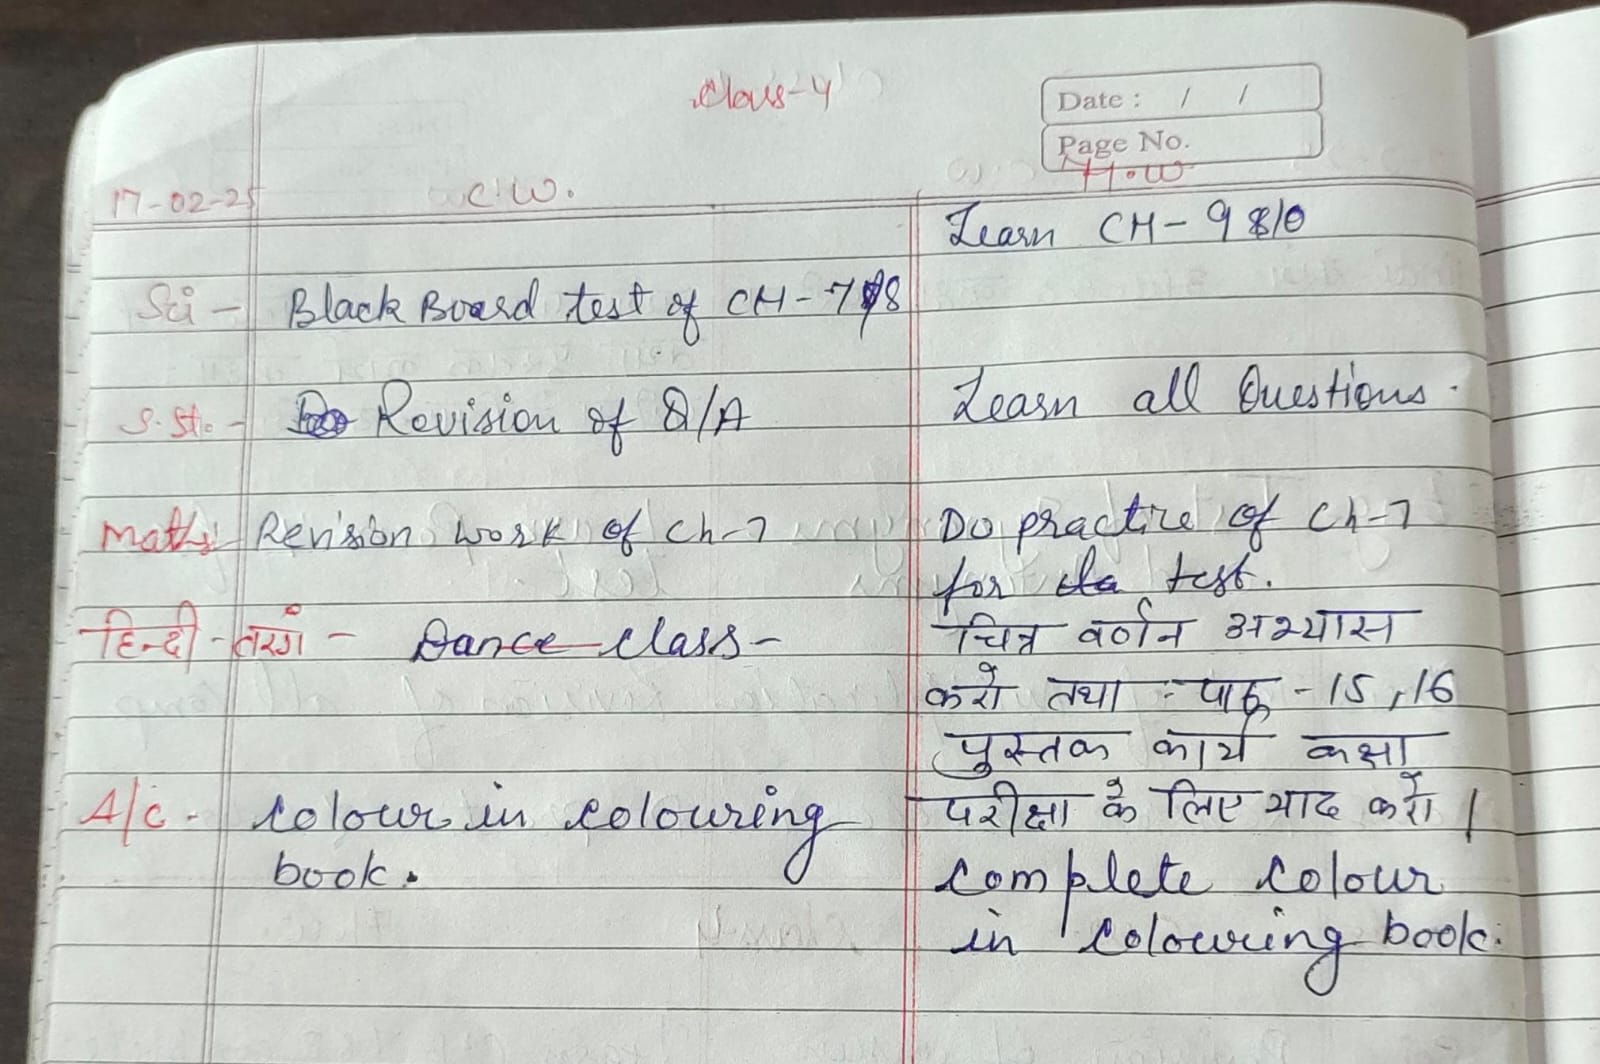 Class-4
Date : / /
Page No.
17-02-25 C.W. H.W
Learn CH-9 &10
Sci - Black Board test of CH-7&8
S.St. - Revision of Q/A Learn all Questions.
Maths Revision work of Ch-7 Do practice of Ch-7
for test.
हिन्दी - तरंग - Dance class - चित्र वर्णन अभ्यास
करो तथा - पाठ - 15, 16
पुस्तक कार्य कक्षा
A/c. colour in colouring परीक्षा के लिए याद करो।
book. complete colour
in colouring book.